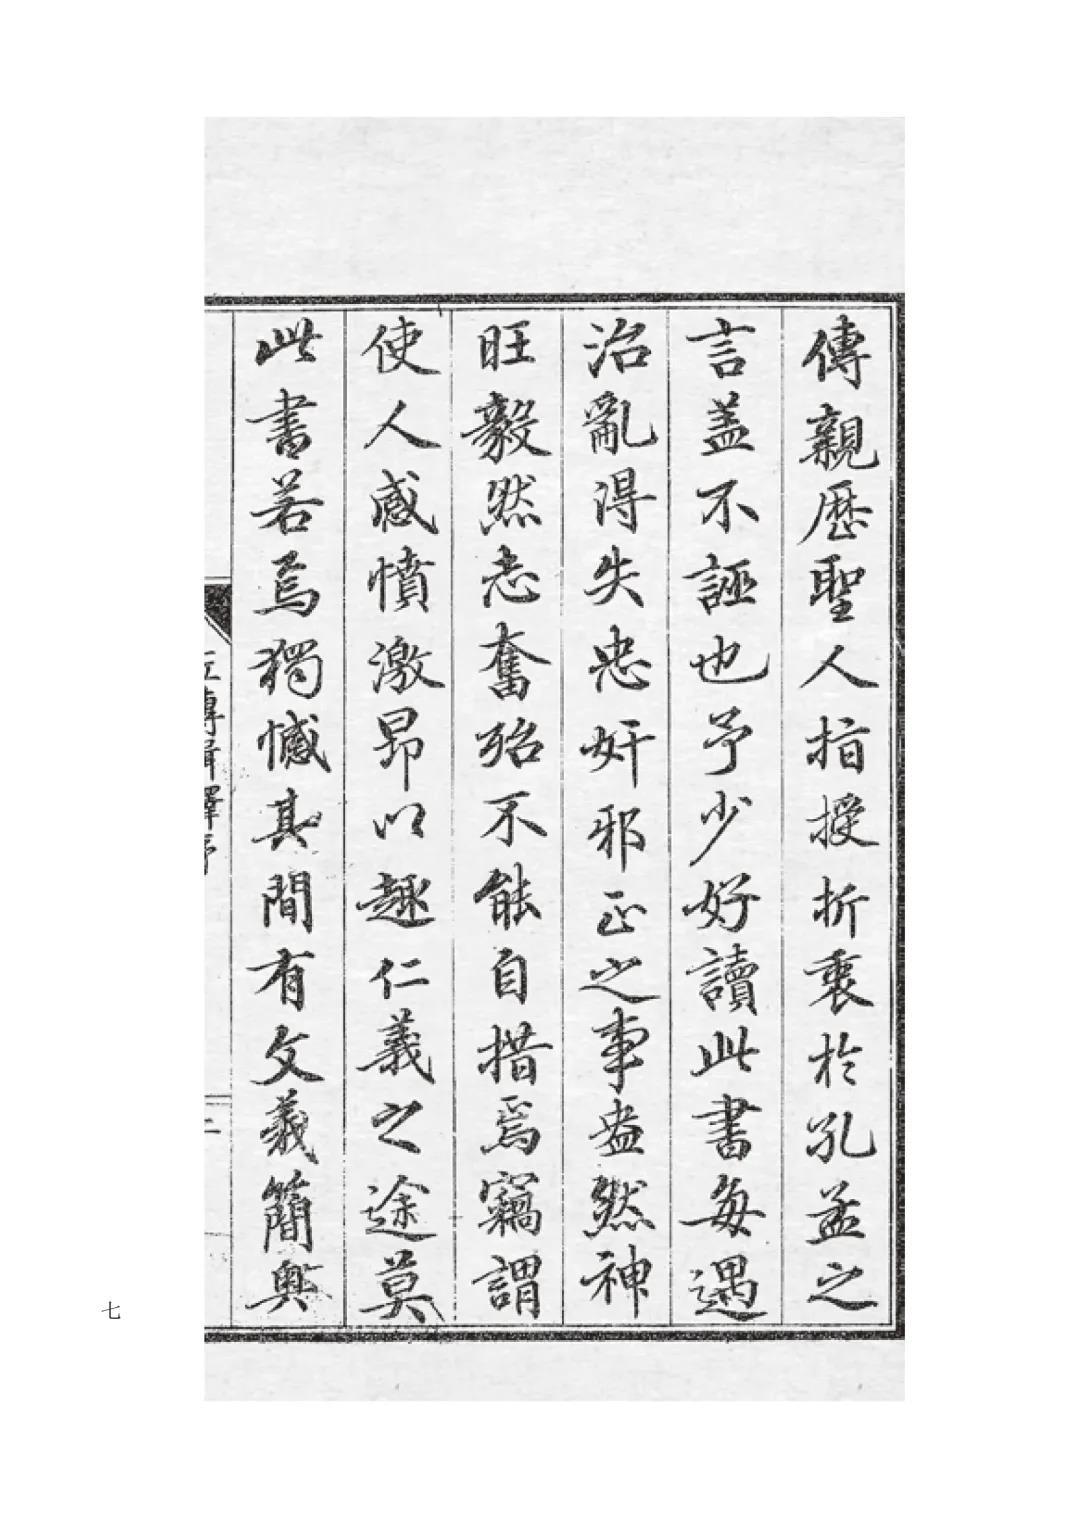 傳親歷聖人指授折衷於孔孟之
言盖不誣也予少好讀此書每遇
治亂得失忠奸邪正之事盎然神
旺毅然志奮殆不能自措焉竊謂
使人感憤激昂以趣仁義之途莫
此書若焉獨憾其間有文義簡奥
左傳輯釋序
二
七